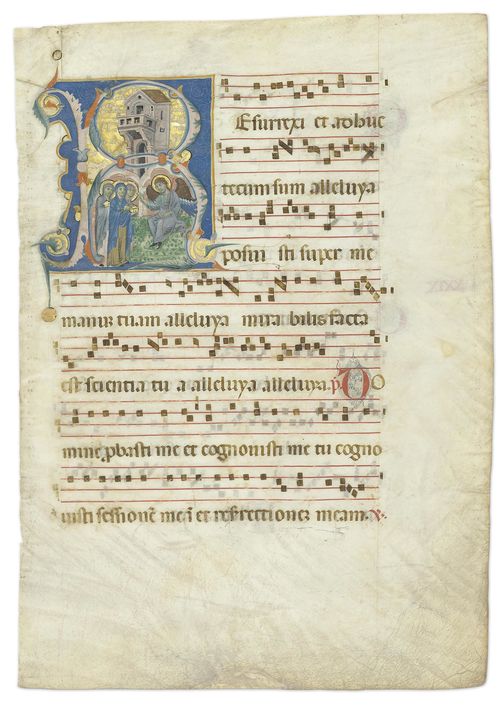 Resurrexi et adhuc
tecum sum alleluya
posui sti super me
manum tuam alleluya mira bilis facta
est scientia tu a alleluya alleluya. p. DO
mine pbasti me et cognouisti me tu cogno
uisti sessionē meā et resurrectionez meam.